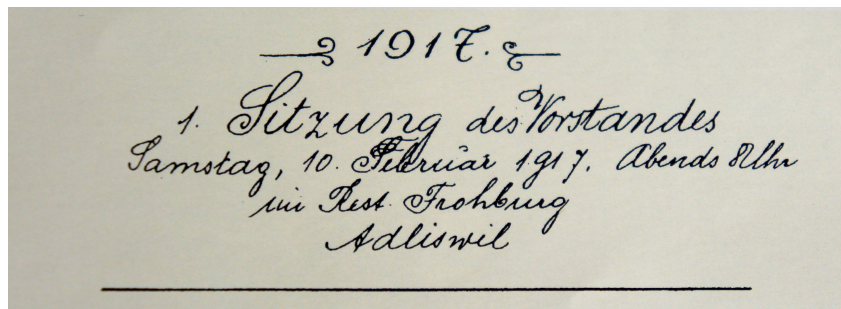 1917.
1. Sitzung des Vorstandes
Samstag, 10. Februar 1917. Abends 8 Uhr
im Rest. Frohburg
Adliswil